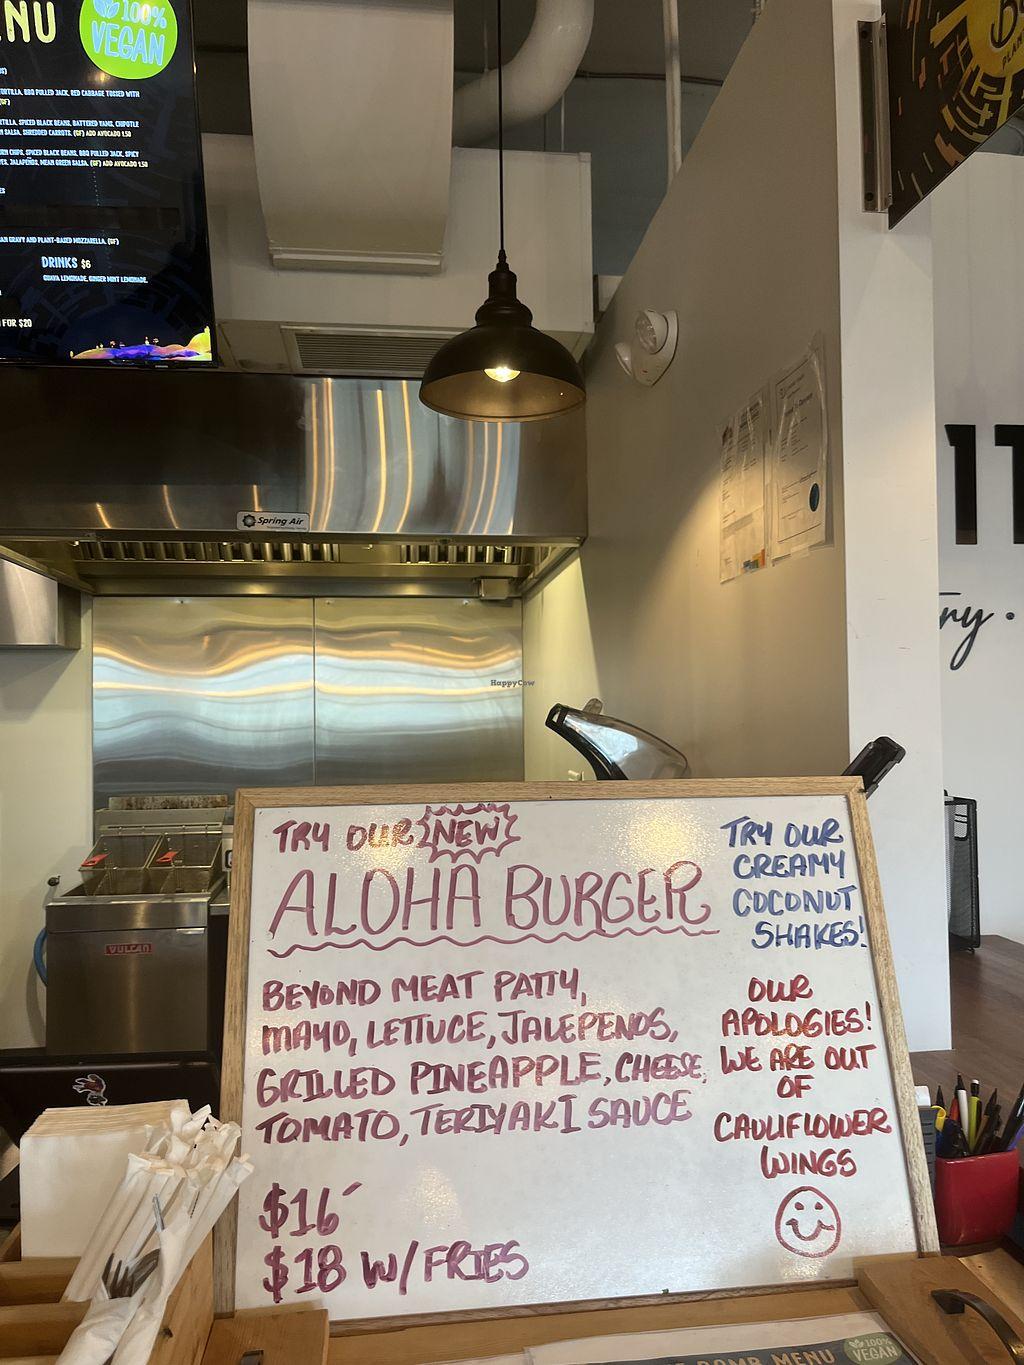 NU
100%
VEGAN
TORTILLA, BBQ PULLED JACK, RED CABBAGE TOSSED WITH
(GF)
SPICED BLACK BEANS, BATTERED YAMS, CHIPOTLE
SALSA, SHREDDED CARROTS. (GF) ADD AVOCADO 1.50
CHIPS, SPICED BLACK BEANS, BBQ PULLED JACK, SPICY
JALAPEÑOS, MEAN GREEN SALSA. (GF) ADD AVOCADO 1.50
GRAVY AND PLANT-BASED MOZZARELLA. (GF)
DRINKS $6
GUAVA LEMONADE, GINGER MINT LEMONADE.
FOR $20
Spring Air
HappyCow
VULCAN
TRY OUR NEW
ALOHA BURGER
BEYOND MEAT PATTY,
MAYO, LETTUCE, JALEPENOS,
GRILLED PINEAPPLE, CHEESE,
TOMATO, TERIYAKI SAUCE
$16
$18 W/ FRIES
TRY OUR
CREAMY
COCONUT
SHAKES!
OUR
APOLOGIES!
WE ARE OUT
OF
CAULIFLOWER
WINGS
BOMB MENU
100%
VEGAN